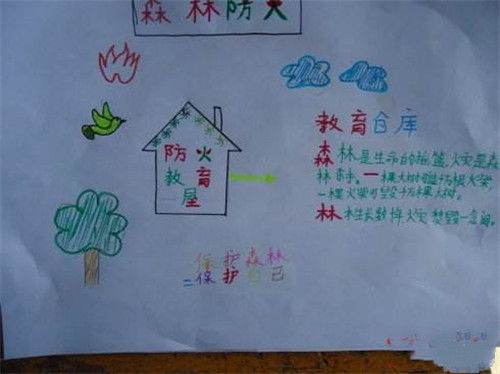 森林防火
教育仓库
森林是生命的摇篮,火灾是森
林 一棵大树 火柴,
一根火柴可毁 万棵大树。
林 长数 火灾焚毁一念间。
防火
教育
屋
保护森林
=保护自己